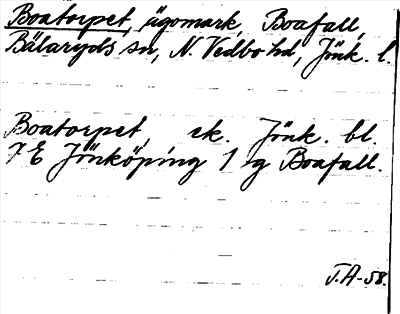 Boatorpet, ägomark, Boafall,
Bälaryds sn, N. Vedbo hd, Jönk. l.
Boatorpet, ek. Jönk. bl.
7 E Jönköping 1 g Boafall.
J.A-58.